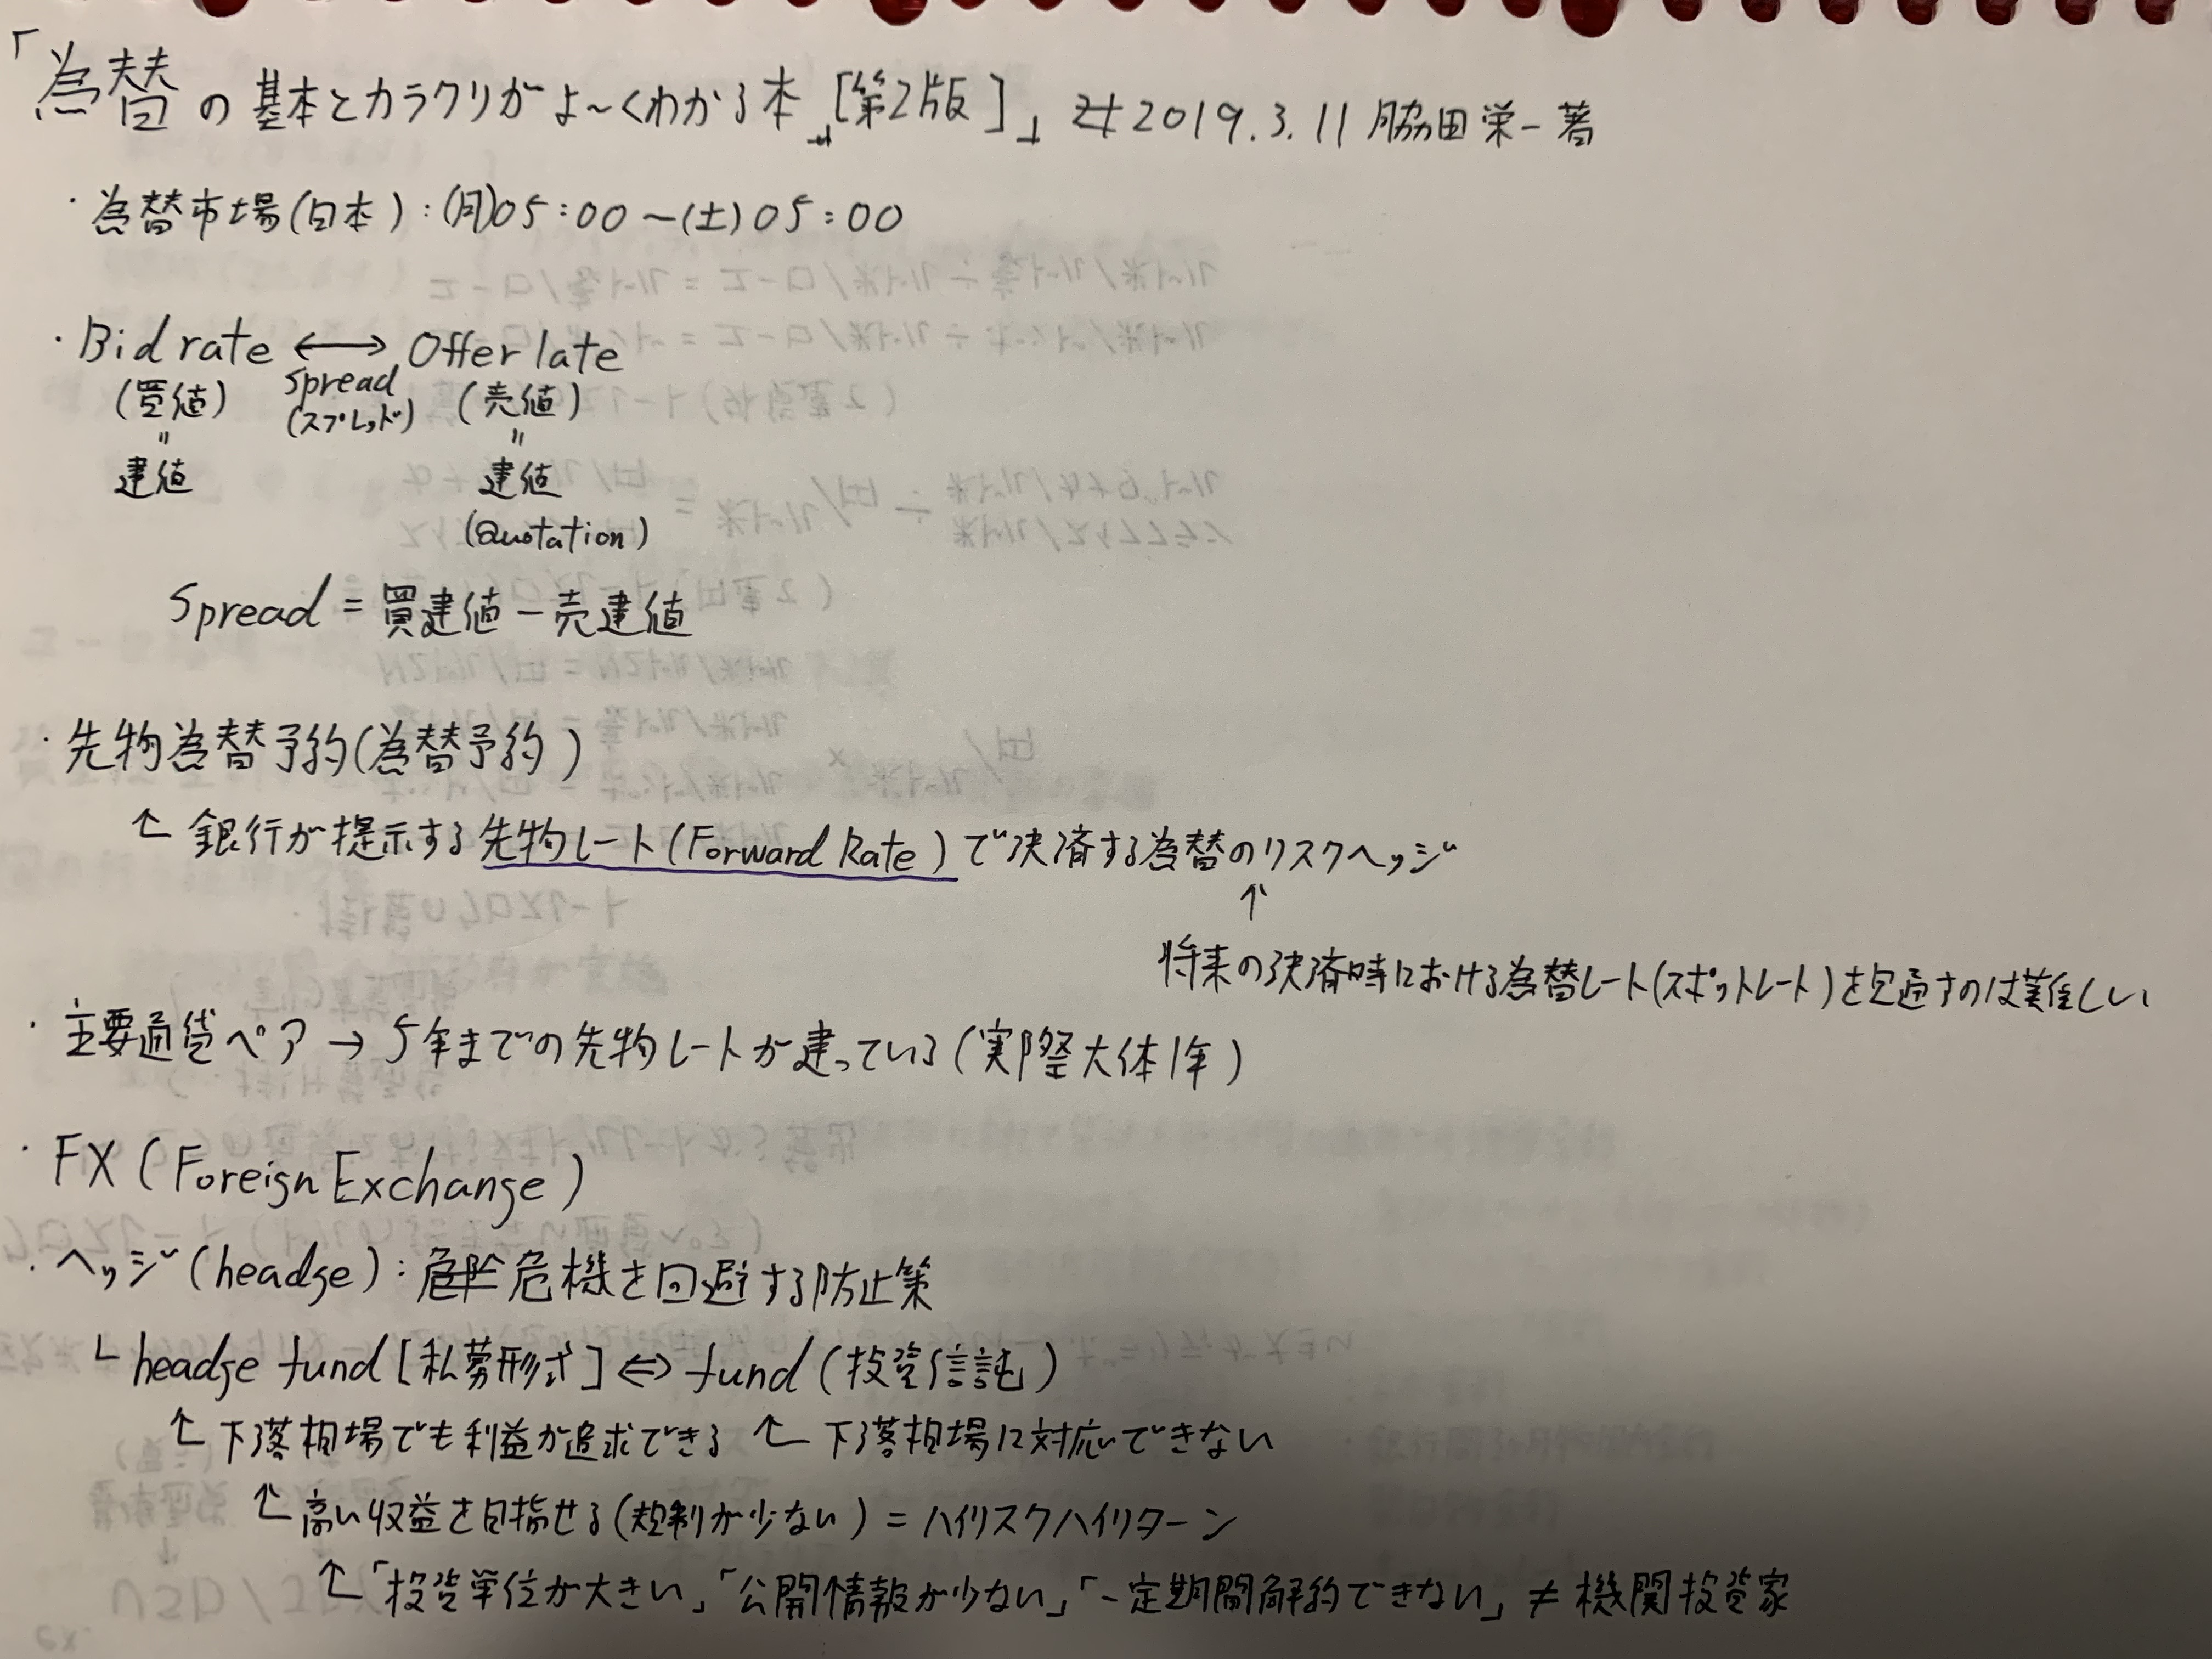 「為替の基本とカラクリがよ~くわかる本」[第2版]」 2019.3.11 脇田栄一著
・為替市場(日本):(月)05:00~(土)05:00
・Bid rate ←→ Offer late
(買値) spread (売値)
(スプレッド)
〃 〃
建値 建値
(Quotation)
Spread = 買建値-売建値
・先物為替予約(為替予約)
↑銀行が提示する先物レート(Forward Rate)で決済する為替のリスクヘッジ
↑
将来の決済時における為替レート(スポットレート)を見通すのは難しい
・主要通貨ペア→5年までの先物レートが建っている(実際大体1年)
・FX(Foreign Exchange)
・ヘッジ(headge):危険危機を回避する防止策
└headge fund[私募形式]⇔fund(投資信託)
↑下落相場でも利益が追求できる ↑下落相場に対応できない
↑高い収益を目指せる(規制が少ない)=ハイリスクハイリターン
↑「投資単位が大きい」「公開情報が少ない」「一定期間解約できない」≠機関投資家